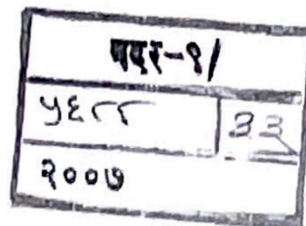 बदर-१/
५६८८ ३३
२००७